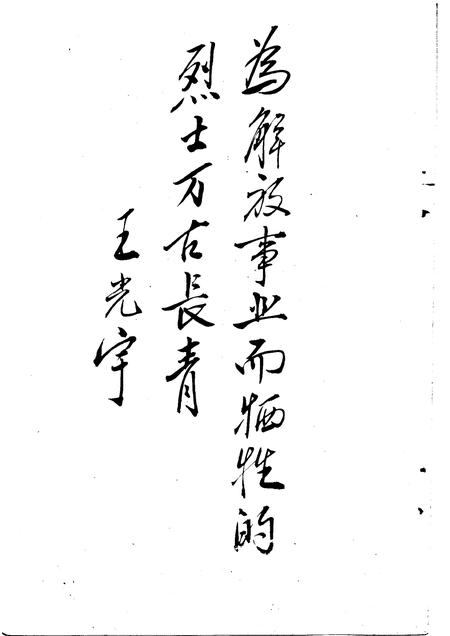 為解放事业而牺牲的
烈士万古長青
王光宇